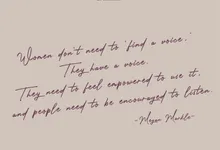 Women don't need to 'find a voice.'
They have a voice.
They need to feel empowered to use it,
and people need to be encouraged to listen.
-Megan Markle-